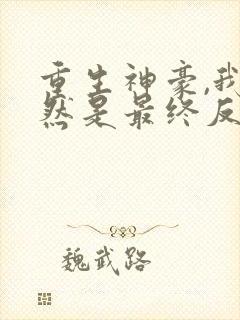 重生神豪,我
然是最终反
魏武路